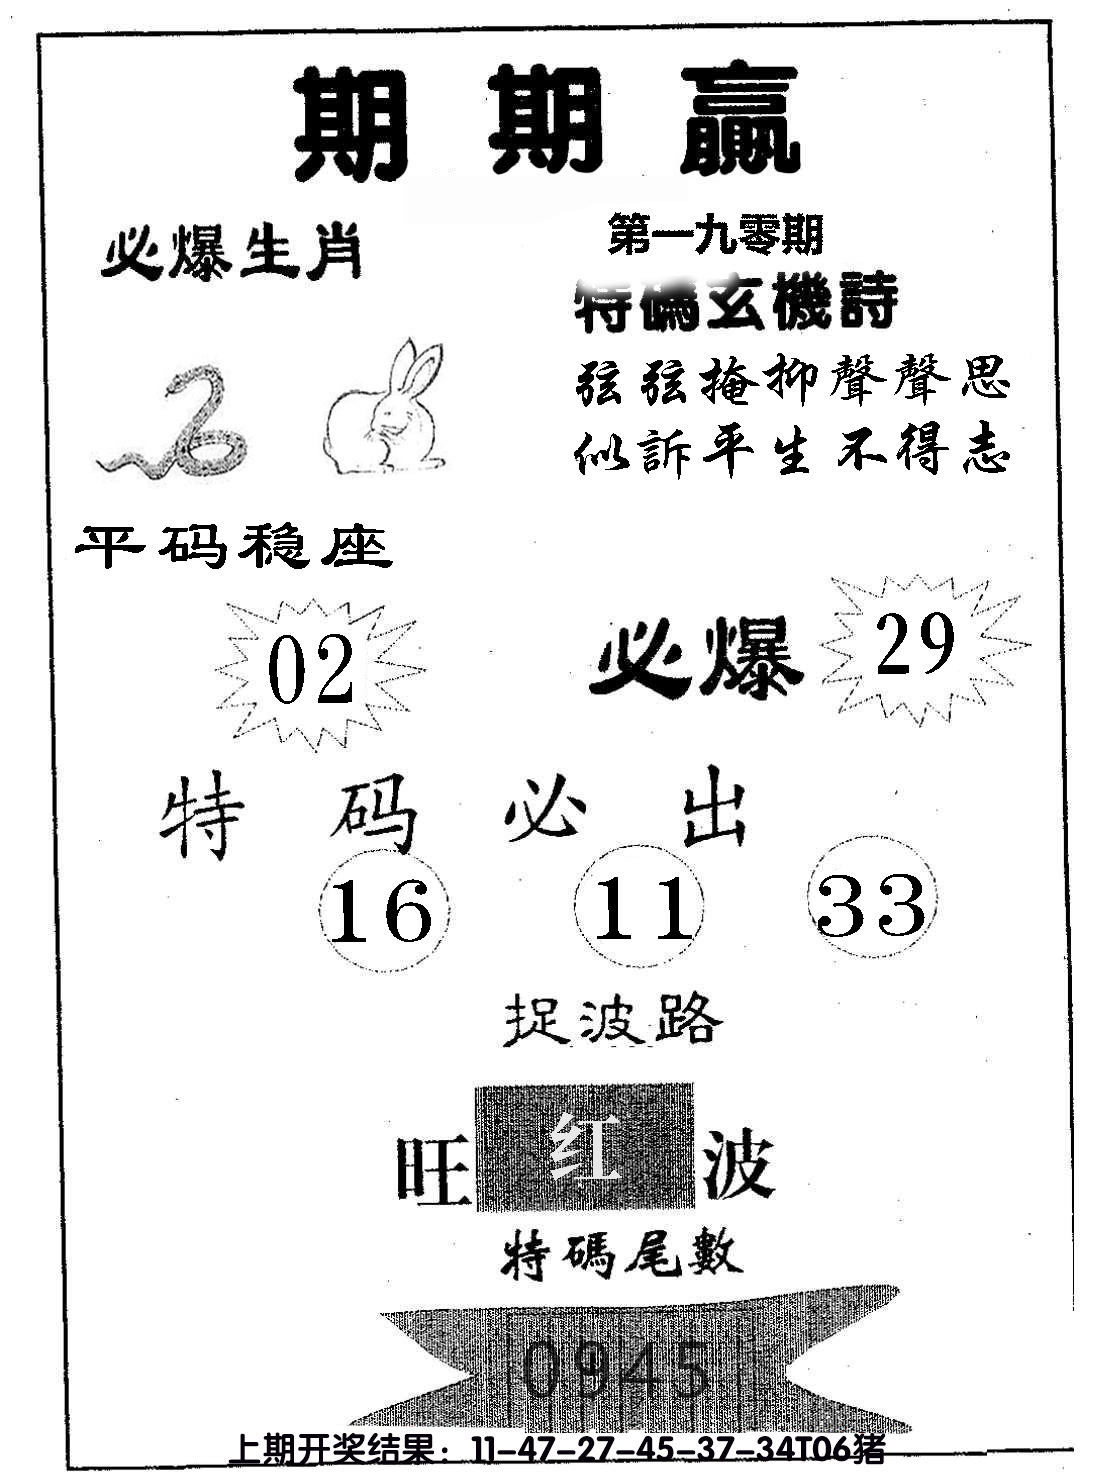 期期赢
必爆生肖
第一九零期
特碼玄機詩
弦弦掩抑聲聲思
似訴平生不得志
平码稳座
02
必爆 29
特码必出
16 11 33
捉波路
旺红波
特碼尾數
0945
上期开奖结果：11-47-27-45-37-34T06猪